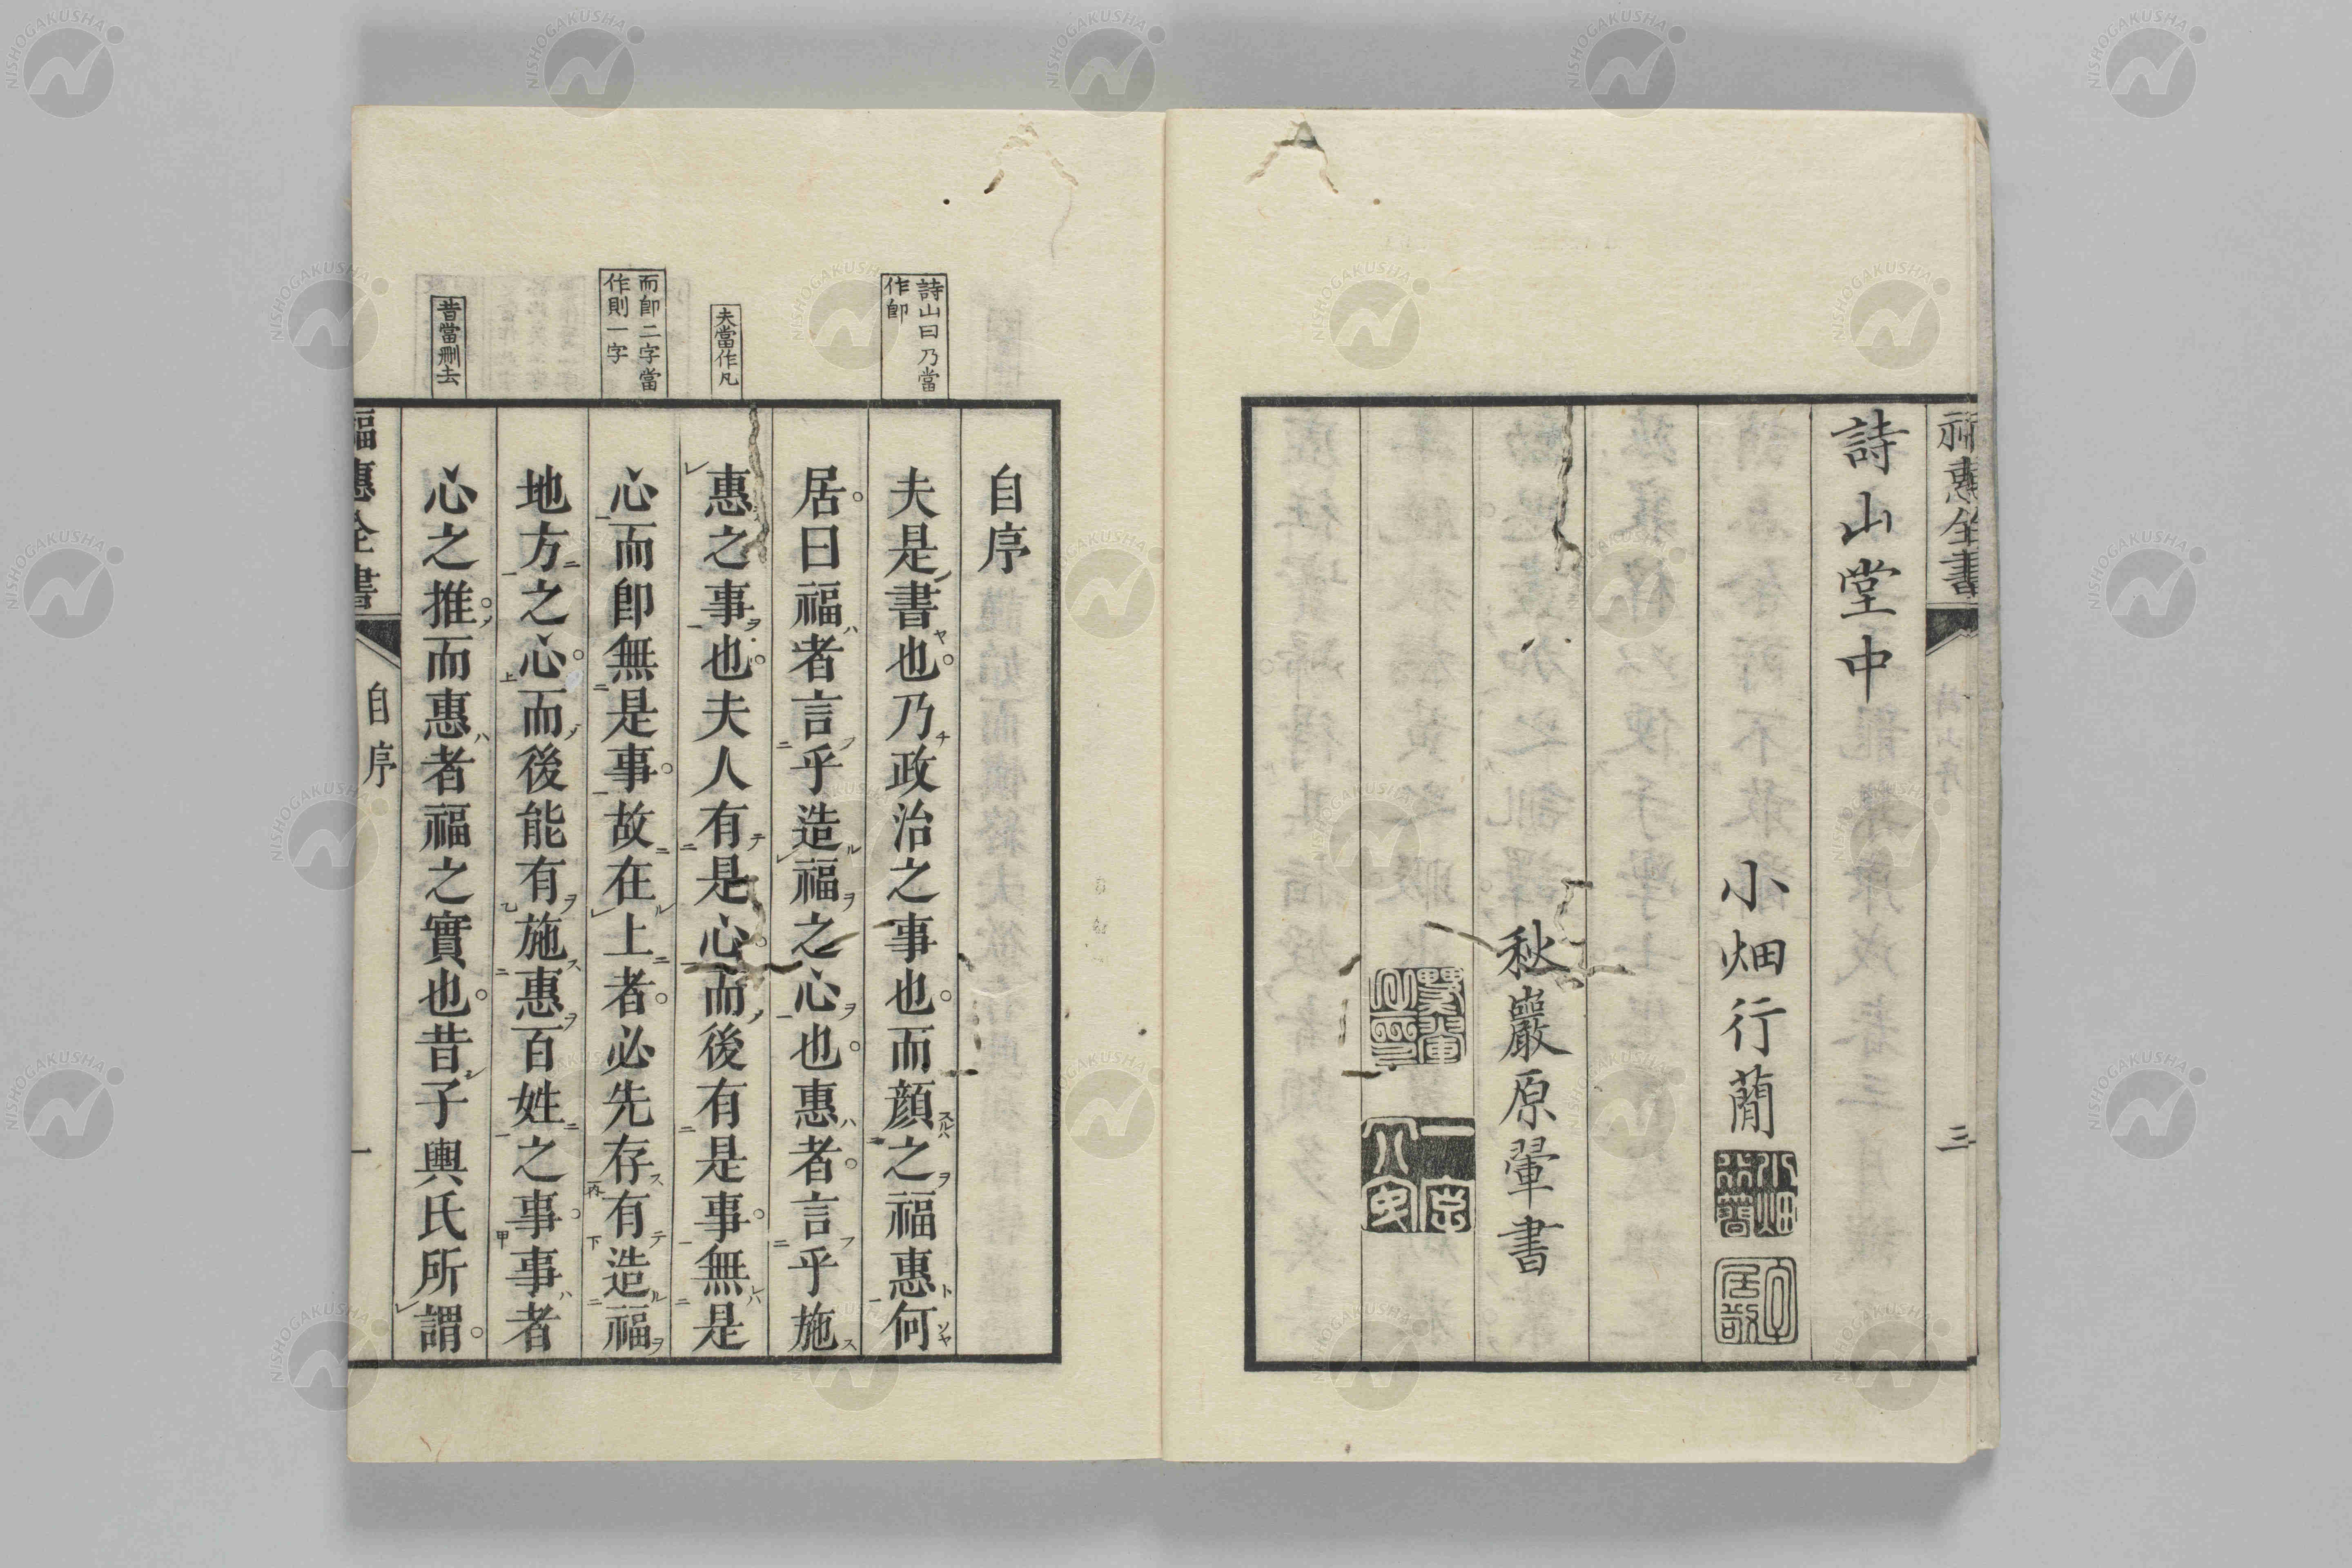 福惠全書
三
詩山堂中
小畑行蕑
小畑行蕑
字居敬
秋巖原翬書
原翬之印
自序
夫是書也乃政治之事也而顔之福惠何
居曰福者言乎造福之心也惠者言乎施
惠之事也夫人有是心而後有是事無是
心而卽無是事故在上者必先存有造福
地方之心而後能有施惠百姓之事事者
心之推而惠者福之實也昔子輿氏所謂
詩山曰乃當
作卽
夫當作凡
而卽二字當
作則一字
昔當刪去
福惠全書
自序
一
NISHOGAKUSHA